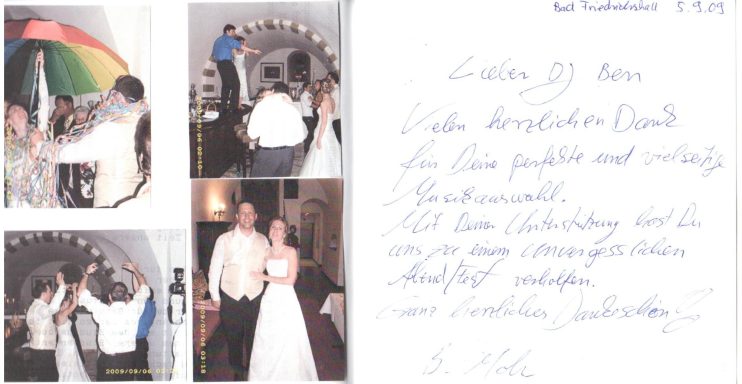 2009/09/06 02:10
2009/09/06 03:18
2009/09/06 02:
Bad Friedrichshall 5.9.09
Lieber DJ Ben
Vielen herzlichen Dank
für Deine perfekte und vielseitige
Musikauswahl.
Mit Deiner Unterstützung hast Du
uns zu einem unvergesslichen
Abend/Fest verholfen.
Ganz herzliches Dankeschön
B.